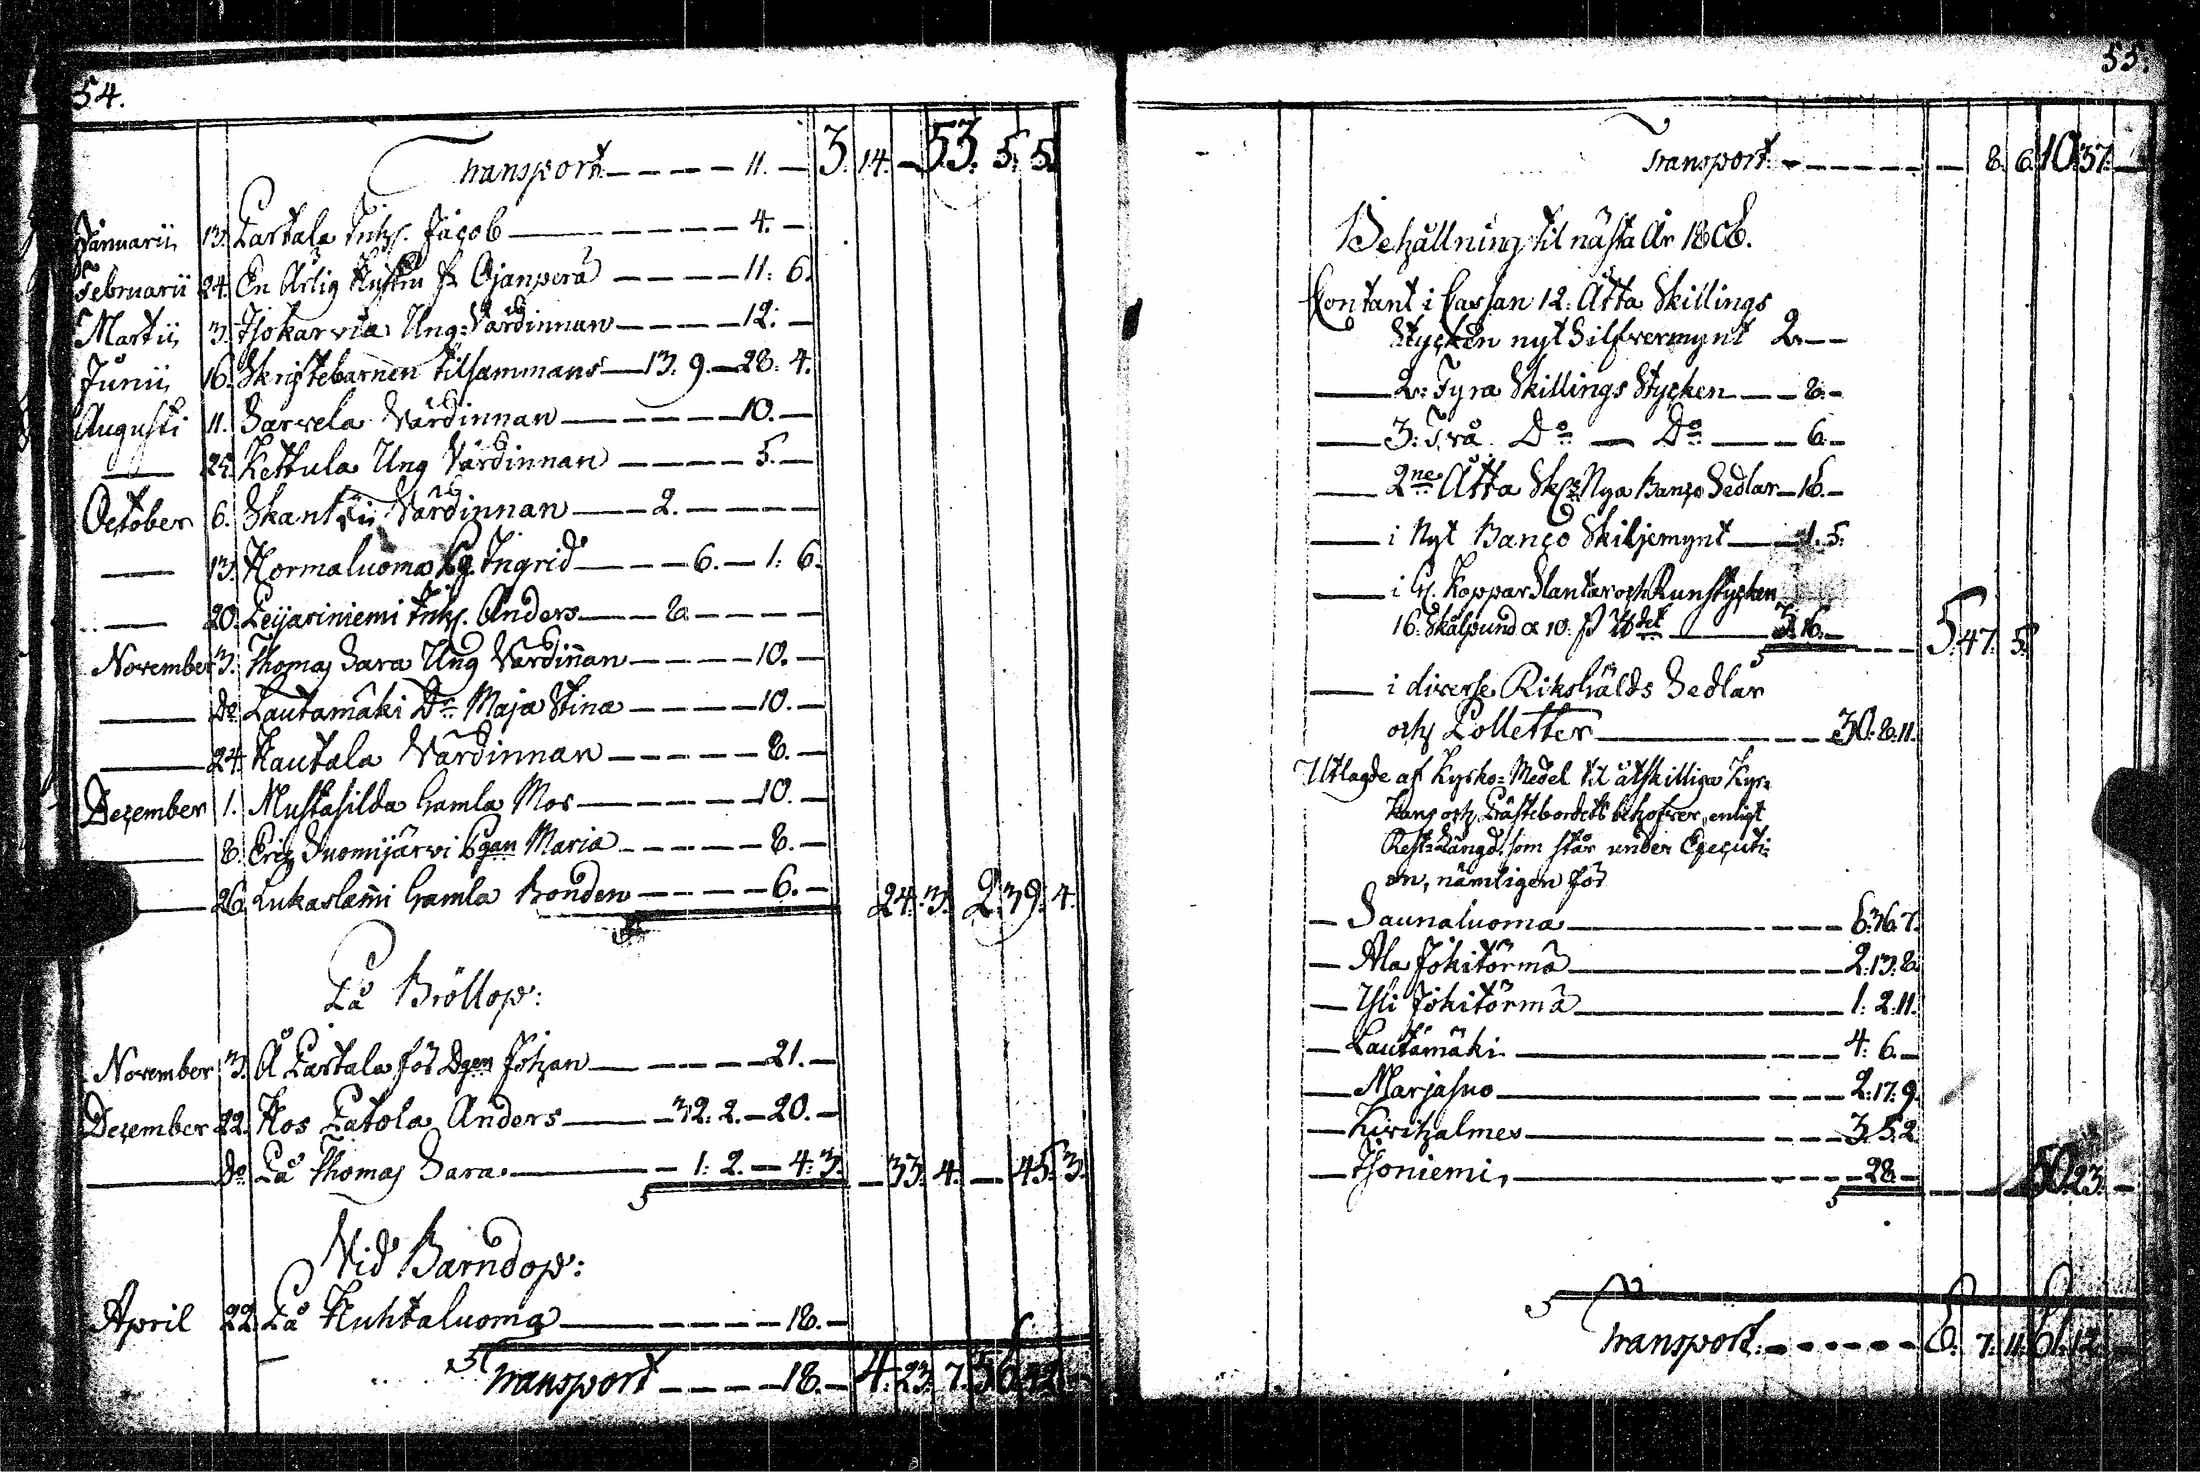 54.
Transport. – – – – 11. – 3. 14. – 53. 5. 5.
Januarii 13. Partala Inhs. Jacob – – – – 4. –
Februarii 24. En Ärlig Hustru fr. Ojanperä – – – – 11: 6.
Martii 3. Isokarvia Ung-Värdinnan – – – – 12: –
Junii 16. Skriftebarnen tilsammans – 13. 9. – 28: 4.
Augusti 11. Sarvela Värdinnan – – – – 10. –
— 25. Kettula Ung Värdinnan – – – – 5. –
October 6. Värdinnan – 2. – – – –
— 13. Hormaluoma Pg. Ingrid – – – 6. – 1: 6.
— 20. Leijariniemi Inhs. Anders – 8. – – – –
November 3. Thomas Sara Ung Värdinnan – – – – 10. –
— Do Lautamäki Do Maja Stina – – – – 10. –
— 24. Hautala Värdinnan – – – – 8. –
December 1. Mustasilda Gamla Mor – – – – 10. –
— 8. Eric Suomijärvi Pgan Maria – – – – 8. –
— 26. Lukaslam̄i Gamla Bonden – – – – 6. – 24. 3. 2. 39. 4.
På Bröllop:
November 3. Å Pärtala för Dgen Johan – – – – 21. –
December 22. Hos Patola Anders – 32. 2. – 20. –
— Do På Thomas Sara. – 1: 2. – 4: 3. – 33. 4. – 45. 3.
Vid Barndop:
April 22. På Huhtaluoma – – – – 18. –
Transport – – – – 18. – 4. 23. 7. 56. 42.
55.
Transport. – – – – – 8. 6. 10. 37. –
Behållning til nästa År 1806.
Contant i Cassan 12: Åtta Skillings
Stycken nyt Silfvermynt 2. – –
— 2: Fyra Skillings Stycken – – 8. –
— 3: Två Do — Do — 6. –
— 2ne Åtta Nya Banco Sedlar – 16. –
— i Nyt Banco Skiljemynt — 1. 5.
— i Koppar Slantar och Runstycken
16. Skålpund a 10. — 3. 16. – – – – 5. 47. 5.
— i diverse Riksgälds Sedlar
och Polletter — 30. 8. 11.
Utlagde af Kyrko-Medel til åtskilliga Kyr-
kans och Prästebordets behofver, enligt
Rest-Längd, som står under Executi-
on, nämligen för
— Saunaluoma – – – – 6. 36. 7.
— Ala Jokitörmä – – – 2. 13. 8.
— Yli Jokitörmä – – – 1. 2. 11.
— Lautamäki – – – 4. 6. –
— Marjasuo – – – 2. 17. 9.
— Kirihalmes – – – 3. 5. 2.
— Isoniemi, – – – 28. – – – – 50. 23. –
Transport. – – – – – 6. 7. 11. 61. 12.